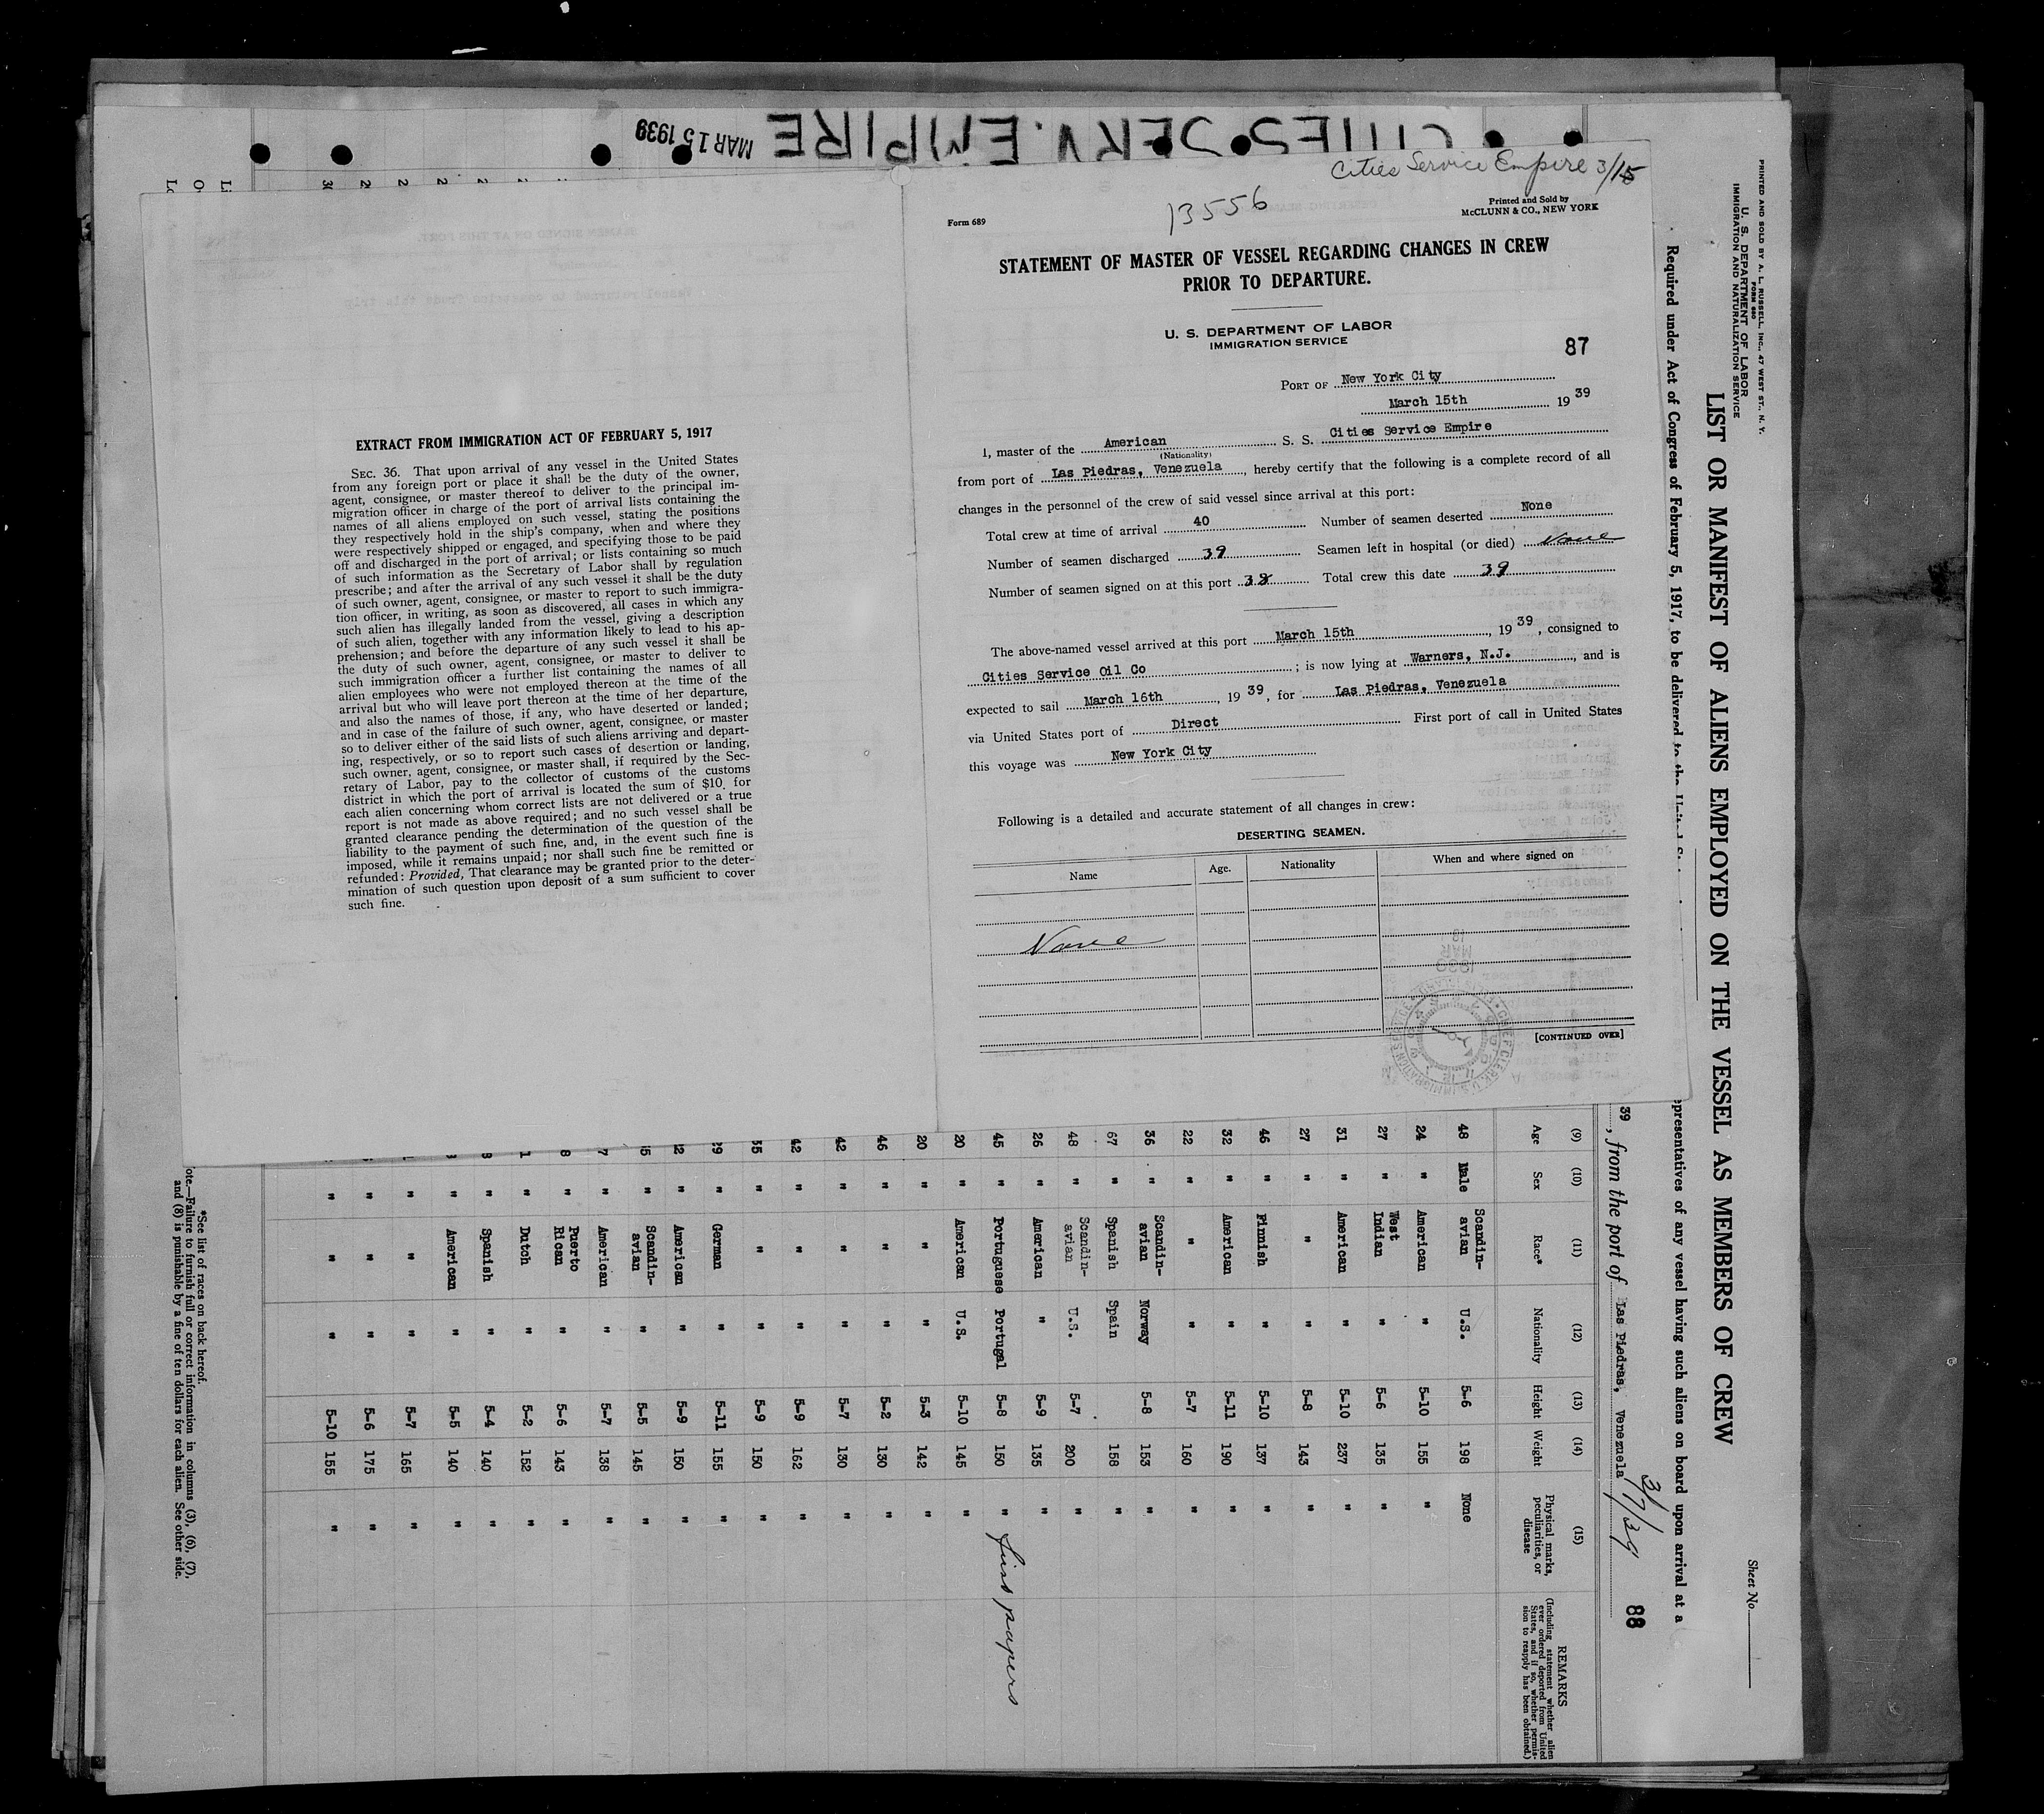 CITIES SERV. EMPIRE
MAR 15 1939
Cities Service Empire 3/15
13556
Form 689
Printed and Sold by
McCLUNN & CO., NEW YORK
STATEMENT OF MASTER OF VESSEL REGARDING CHANGES IN CREW
PRIOR TO DEPARTURE.
U. S. DEPARTMENT OF LABOR
IMMIGRATION SERVICE
87
PORT OF New York City
March 15th 1939
I, master of the American S. S. Cities Service Empire
(Nationality)
from port of Las Piedras, Venezuela, hereby certify that the following is a complete record of all
changes in the personnel of the crew of said vessel since arrival at this port:
Total crew at time of arrival 40 Number of seamen deserted None
Number of seamen discharged 39 Seamen left in hospital (or died) None
Number of seamen signed on at this port 38 Total crew this date 39
The above-named vessel arrived at this port March 15th, 1939, consigned to
Cities Service Oil Co ; is now lying at Warners, N.J., and is
expected to sail March 16th, 1939, for Las Piedras, Venezuela
via United States port of Direct First port of call in United States
this voyage was New York City
Following is a detailed and accurate statement of all changes in crew:
DESERTING SEAMEN.
Name Age. Nationality When and where signed on
None
[CONTINUED OVER]
EXTRACT FROM IMMIGRATION ACT OF FEBRUARY 5, 1917
SEC. 36. That upon arrival of any vessel in the United States
from any foreign port or place it shall be the duty of the owner,
agent, consignee, or master thereof to deliver to the principal im-
migration officer in charge of the port of arrival lists containing the
names of all aliens employed on such vessel, stating the positions
they respectively hold in the ship's company, when and where they
were respectively shipped or engaged, and specifying those to be paid
off and discharged in the port of arrival; or lists containing so much
of such information as the Secretary of Labor shall by regulation
prescribe; and after the arrival of any such vessel it shall be the duty
of such owner, agent, consignee, or master to report to such immigra-
tion officer, in writing, as soon as discovered, all cases in which any
such alien has illegally landed from the vessel, giving a description
of such alien, together with any information likely to lead to his ap-
prehension; and before the departure of any such vessel it shall be
the duty of such owner, agent, consignee, or master to deliver to
such immigration officer a further list containing the names of all
alien employees who were not employed thereon at the time of the
arrival but who will leave port thereon at the time of her departure,
and also the names of those, if any, who have deserted or landed;
and in case of the failure of such owner, agent, consignee, or master
so to deliver either of the said lists of such aliens arriving and depart-
ing, respectively, or so to report such cases of desertion or landing,
such owner, agent, consignee, or master shall, if required by the Sec-
retary of Labor, pay to the collector of customs of the customs
district in which the port of arrival is located the sum of $10 for
each alien concerning whom correct lists are not delivered or a true
report is not made as above required; and no such vessel shall be
granted clearance pending the determination of the question of the
liability to the payment of such fine, and, in the event such fine is
imposed, while it remains unpaid; nor shall such fine be remitted or
refunded: Provided, That clearance may be granted prior to the deter-
mination of such question upon deposit of a sum sufficient to cover
such fine.
PRINTED AND SOLD BY A. L. RUSSELL, INC., 47 WEST ST., N. Y.
FORM 680
U. S. DEPARTMENT OF LABOR
IMMIGRATION AND NATURALIZATION SERVICE
Sheet No.
LIST OR MANIFEST OF ALIENS EMPLOYED ON THE VESSEL AS MEMBERS OF CREW
Required under Act of Congress of February 5, 1917, to be delivered to the
representatives of any vessel having such aliens on board upon arrival at a
39, from the port of Las Piedras, Venezuela 3/7/39 88
(9) (10) (11) (12) (13) (14) (15)
Age Sex Race* Nationality Height Weight Physical marks, peculiarities, or disease
REMARKS
(Including statement whether alien
ever ordered deported from United
States, and if so, whether permis-
sion to reapply has been obtained.)
48 Male Scandin-avian U.S. 5-6 198 None
24 " American " 5-10 155 "
27 " West Indian " 5-6 135 "
31 " American " 5-10 237 "
27 " " " 5-8 143 "
46 " Finnish " 5-10 137 "
32 " American " 5-11 190 "
22 " " " 5-7 160 "
36 " Scandin-avian Norway 5-8 153 "
67 " Spanish Spain 158 "
48 " Scandin-avian U.S. 5-7 200 "
26 " American " 5-9 135 "
45 " Portuguese Portugal 5-8 150 " first papers
20 " American U.S. 5-10 145 "
20 " " " 5-3 142 "
46 " " " 5-2 130 "
42 " " " 5-7 130 "
42 " " " 5-9 162 "
35 " " " 5-9 150 "
29 " German " 5-11 155 "
22 " American " 5-9 150 "
5 " Scandin-avian " 5-5 145 "
7 " American " 5-7 138 "
8 " Puerto Rican " 5-6 143 "
1 " Dutch " 5-2 152 "
8 " Spanish " 5-4 140 "
" American " 5-5 140 "
" " " 5-7 165 "
" " " 5-6 175 "
" " " 5-10 155 "
*See list of races on back hereof.
ote.—Failure to furnish full or correct information in columns (3), (6), (7),
and (8) is punishable by a fine of ten dollars for each alien. See other side.